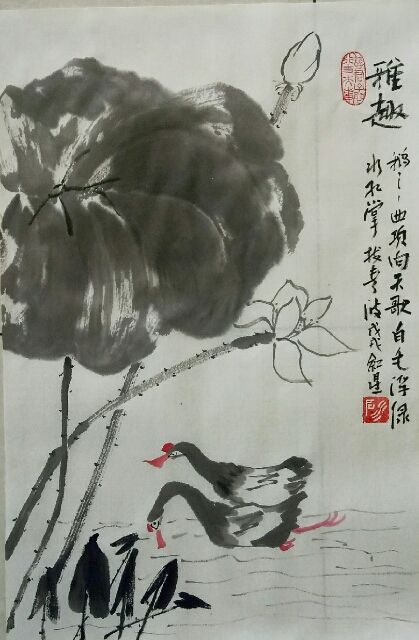 雅趣
鹅々曲项向天歌白毛浮绿
水红掌拨青波戊戌